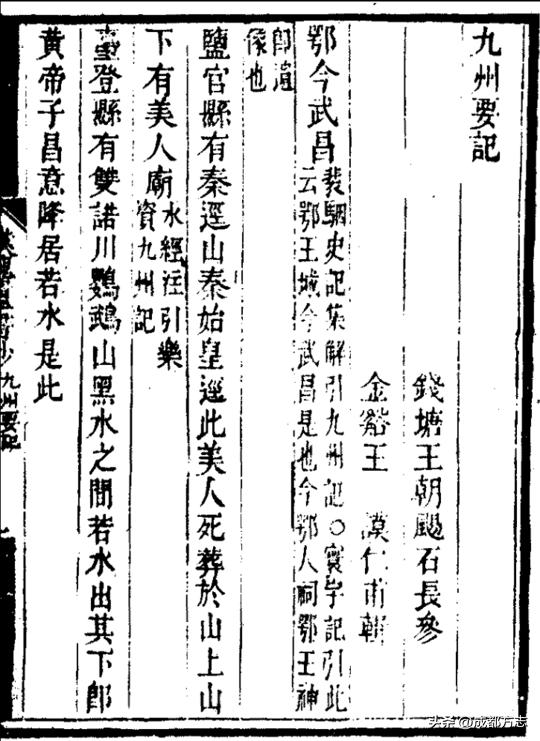 九州要記
錢塘王朝颺石長參
金谿王　謨仁甫輯
鄂今武昌
裴駰史記集解引九州記○寰宇記引此
云鄂王城今武昌是也今鄂人祠鄂王神
卽遺
像也
鹽官縣有秦逕山秦始皇逕此美人死葬於山上山
下有美人廟
水經注引樂
資九州記
臺登縣有雙諾川鸚鵡山黑水之間若水出其下卽
黃帝子昌意降居若水是此
九州要記
头条@成都方志